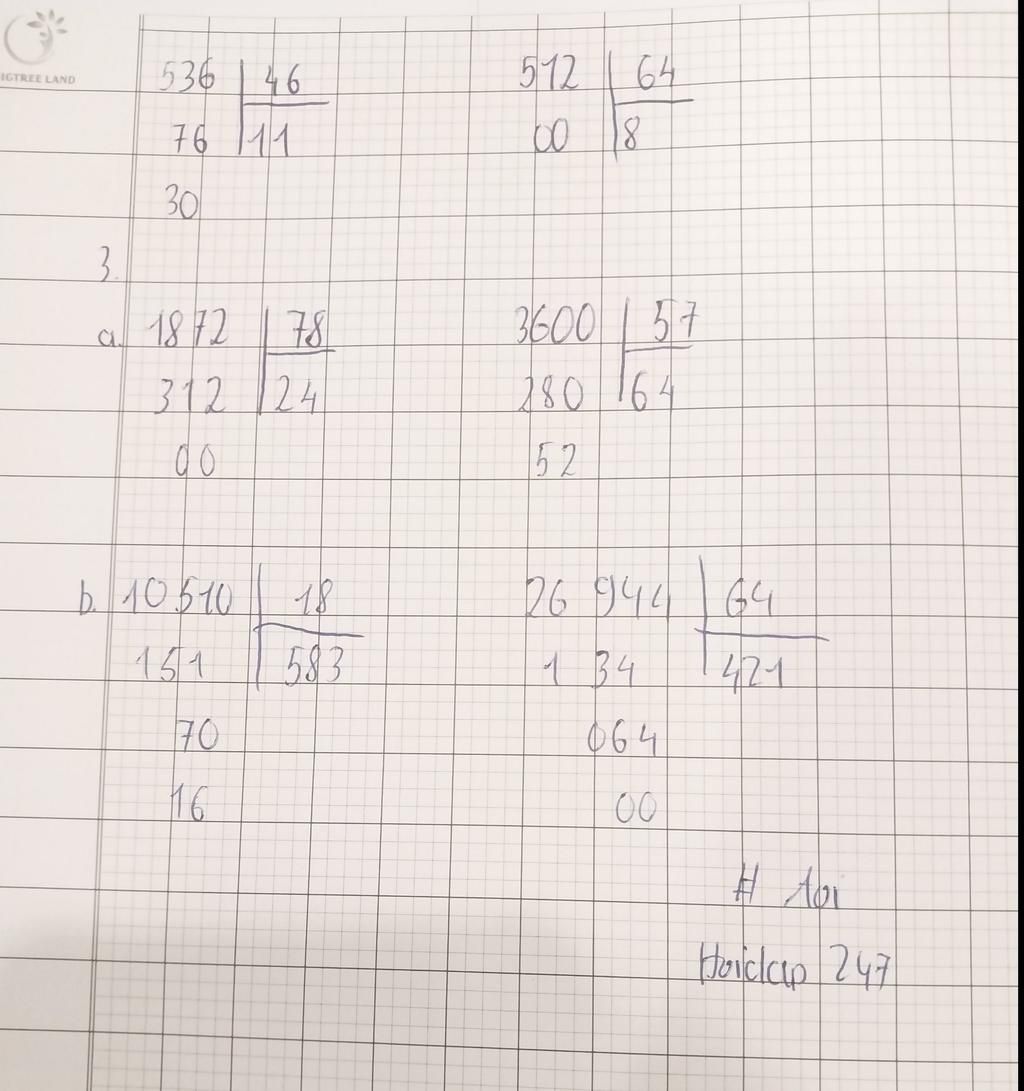 IGTREE LAND
536 46 512 64
76 11 00 8
30
3.
a. 1872 78 3600 57
312 24 180 64
00 52
b. 10 510 18 26 944 64
151 583 1 34 421
70 064
16 00
# 1oi
Hoidap 247